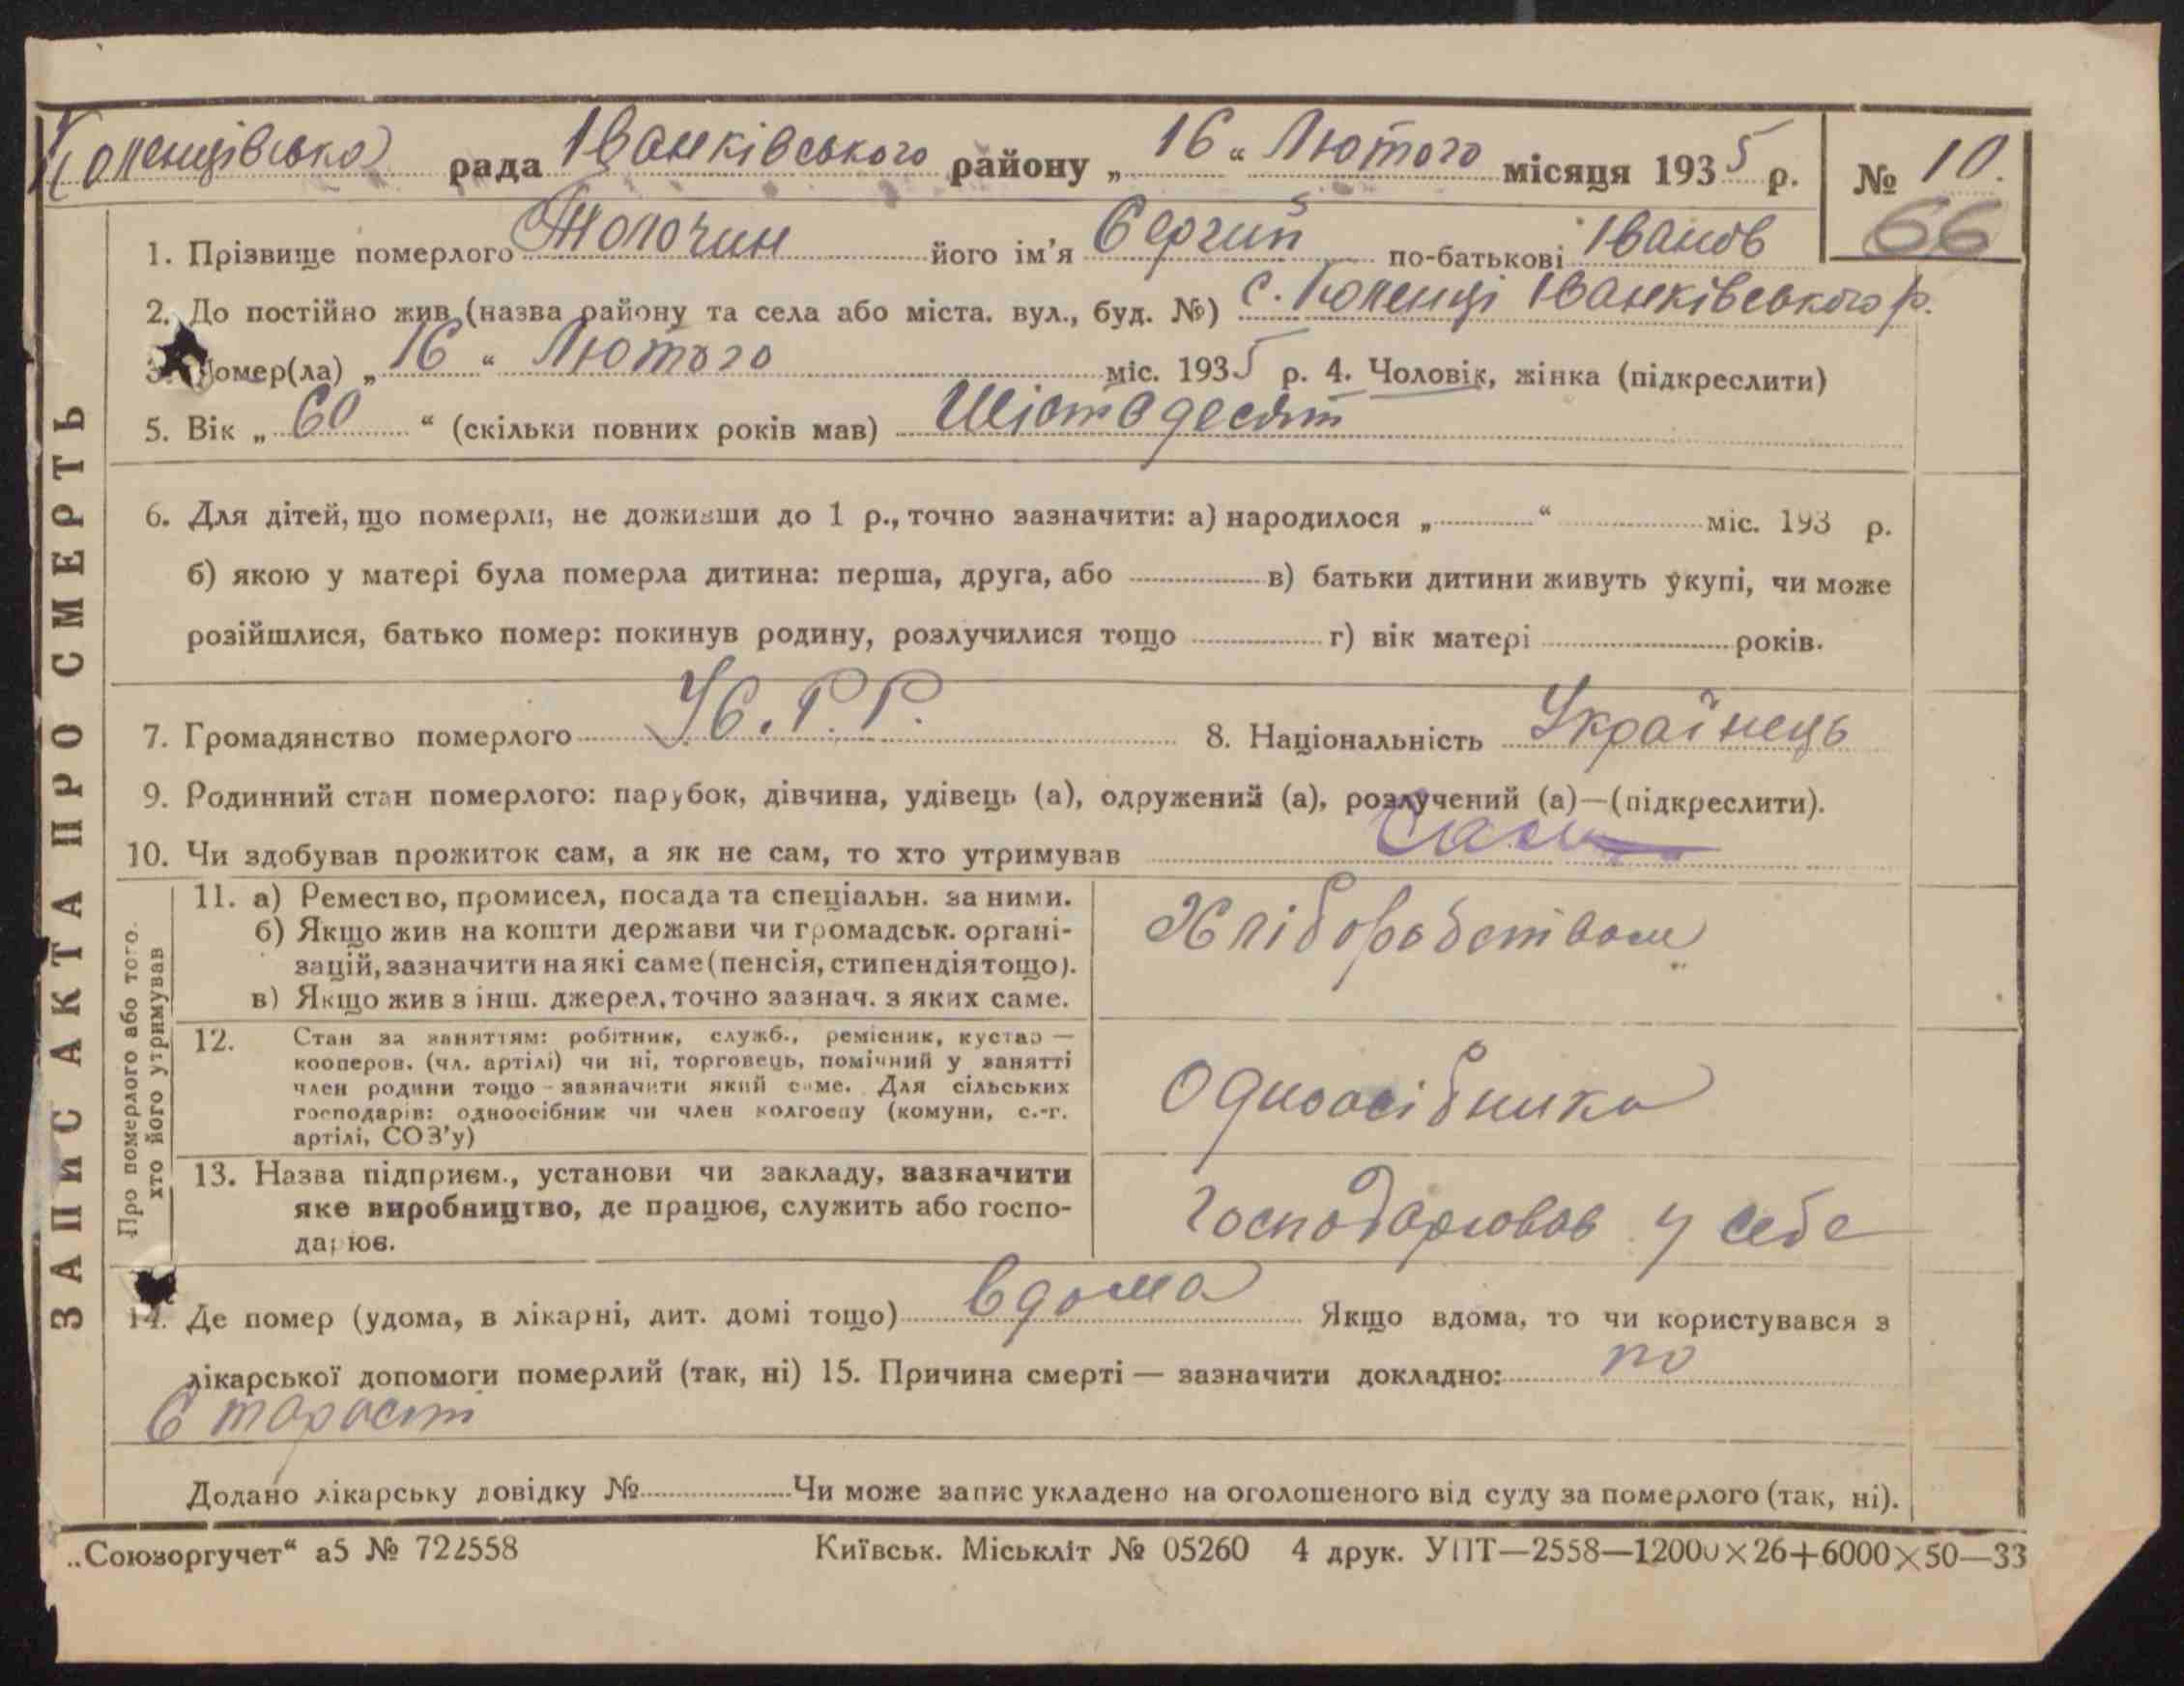 Коленцівська рада Іванківського району „ 16 “ Лютого місяця 1935 р. № 10.
66
1. Прізвище померлого Толочин його ім'я Сергий по-батькові Іванов
2. До постійно жив (назва району та села або міста. вул., буд. №) с. Коленці Іванківського р.
3. Помер(ла) „ 16 “ Лютого міс. 1935 р. 4. Чоловік, жінка (підкреслити)
5. Вік „ 60 “ (скільки повних років мав) Шістдесят
6. Для дітей, що померли, не доживши до 1 р., точно зазначити: а) народилося „ “ міс. 193 р.
б) якою у матері була померла дитина: перша, друга, або в) батьки дитини живуть укупі, чи може
розійшлися, батько помер: покинув родину, розлучилися тощо г) вік матері років.
7. Громадянство померлого УС.Р.Р. 8. Національність Українець
9. Родинний стан померлого: парубок, дівчина, удівець (а), одружений (а), розлучений (а)—(підкреслити).
10. Чи здобував прожиток сам, а як не сам, то хто утримував Сам
ЗАПИС АКТА ПРО СМЕРТЬ
Про померлого або того.
хто його утримував
11. а) Ремество, промисел, посада та спеціальн. за ними.
б) Якщо жив на кошти держави чи громадськ. органі-
зацій, зазначити на які саме (пенсія, стипендія тощо).
в) Якщо жив з інш. джерел, точно зазнач. з яких саме.
Хліборобством
12. Стан за заняттям: робітник, служб., ремісник, кустар —
кооперов. (чл. артілі) чи ні, торговець, помічний у занятті
член родини тощо - зазначити який саме. Для сільських
господарів: одноосібник чи член колгоспу (комуни, с.-г.
артілі, СОЗ'у)
Одноосібника
13. Назва підприєм., установи чи закладу, зазначити
яке виробництво, де працює, служить або госпо-
дарює.
Господарював у себе
14. Де помер (удома, в лікарні, дит. домі тощо) вдома Якщо вдома, то чи користувався з
лікарської допомоги померлий (так, ні) 15. Причина смерті — зазначити докладно: по
Старост
Додано лікарську довідку № Чи може запис укладено на оголошеного від суду за померлого (так, ні).
„Союзоргучет“ а5 № 722558 Київськ. Міськліт № 05260 4 друк. УПТ—2558—12000×26+6000×50—33